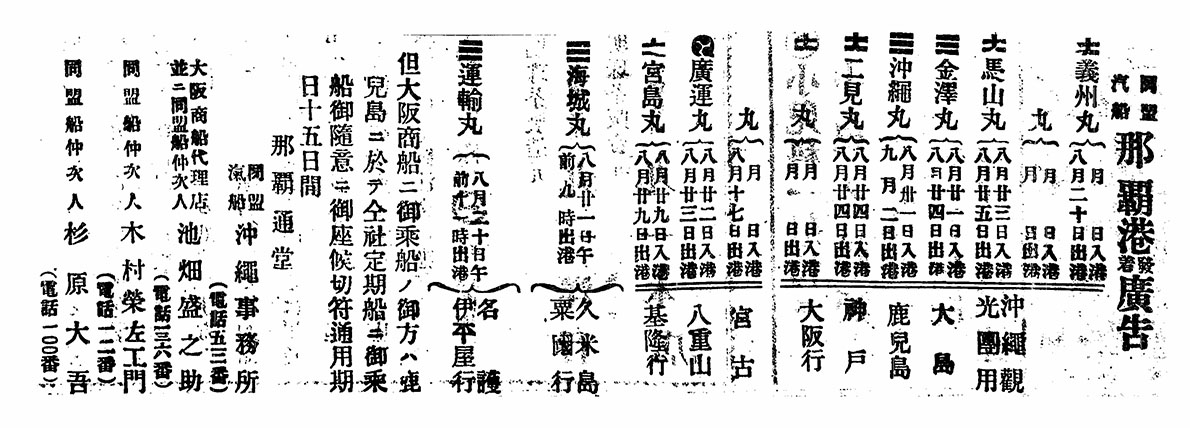 同盟
汽船
那覇港發着廣告
義州丸 月 日入港
八月二十日出港
丸 月 日入港
月 日出港
馬山丸 八月廿三日入港
八月廿五日出港
沖繩觀
光團用
金澤丸 八月廿一日入港
八月廿四日出港
大島
沖繩丸 八月卅一日入港
九月二日出港
鹿兒島
二見丸 八月廿四日入港
八月廿四日出港
神戶
丸 月 日入港
月 日出港
大阪行
丸 月 日入港
八月十七日出港
宮古
廣運丸 八月廿二日入港
八月廿三日出港
八重山
宮島丸 八月廿九日入港
八月廿九日出港
基隆行
海城丸 八月廿一日午
前九時出港
久米島
粟國行
運輸丸 八月二十日午
前十一時出港
名護
伊平屋行
但大阪商船ニ御乘船ノ御方ハ鹿
兒島ニ於テ仝社定期船ニ御乘
船御隨意ニ御座候切符通用期
日十五日間
那覇通堂
同盟
汽船
沖繩事務所
(電話五三番)
大阪商船代理店
並ニ同盟船仲次人
池畑盛之助
(電話一三六番)
同盟船仲次人 木村榮左工門
(電話一二番)
同盟船仲次人 杉原大吾
(電話一〇〇番)